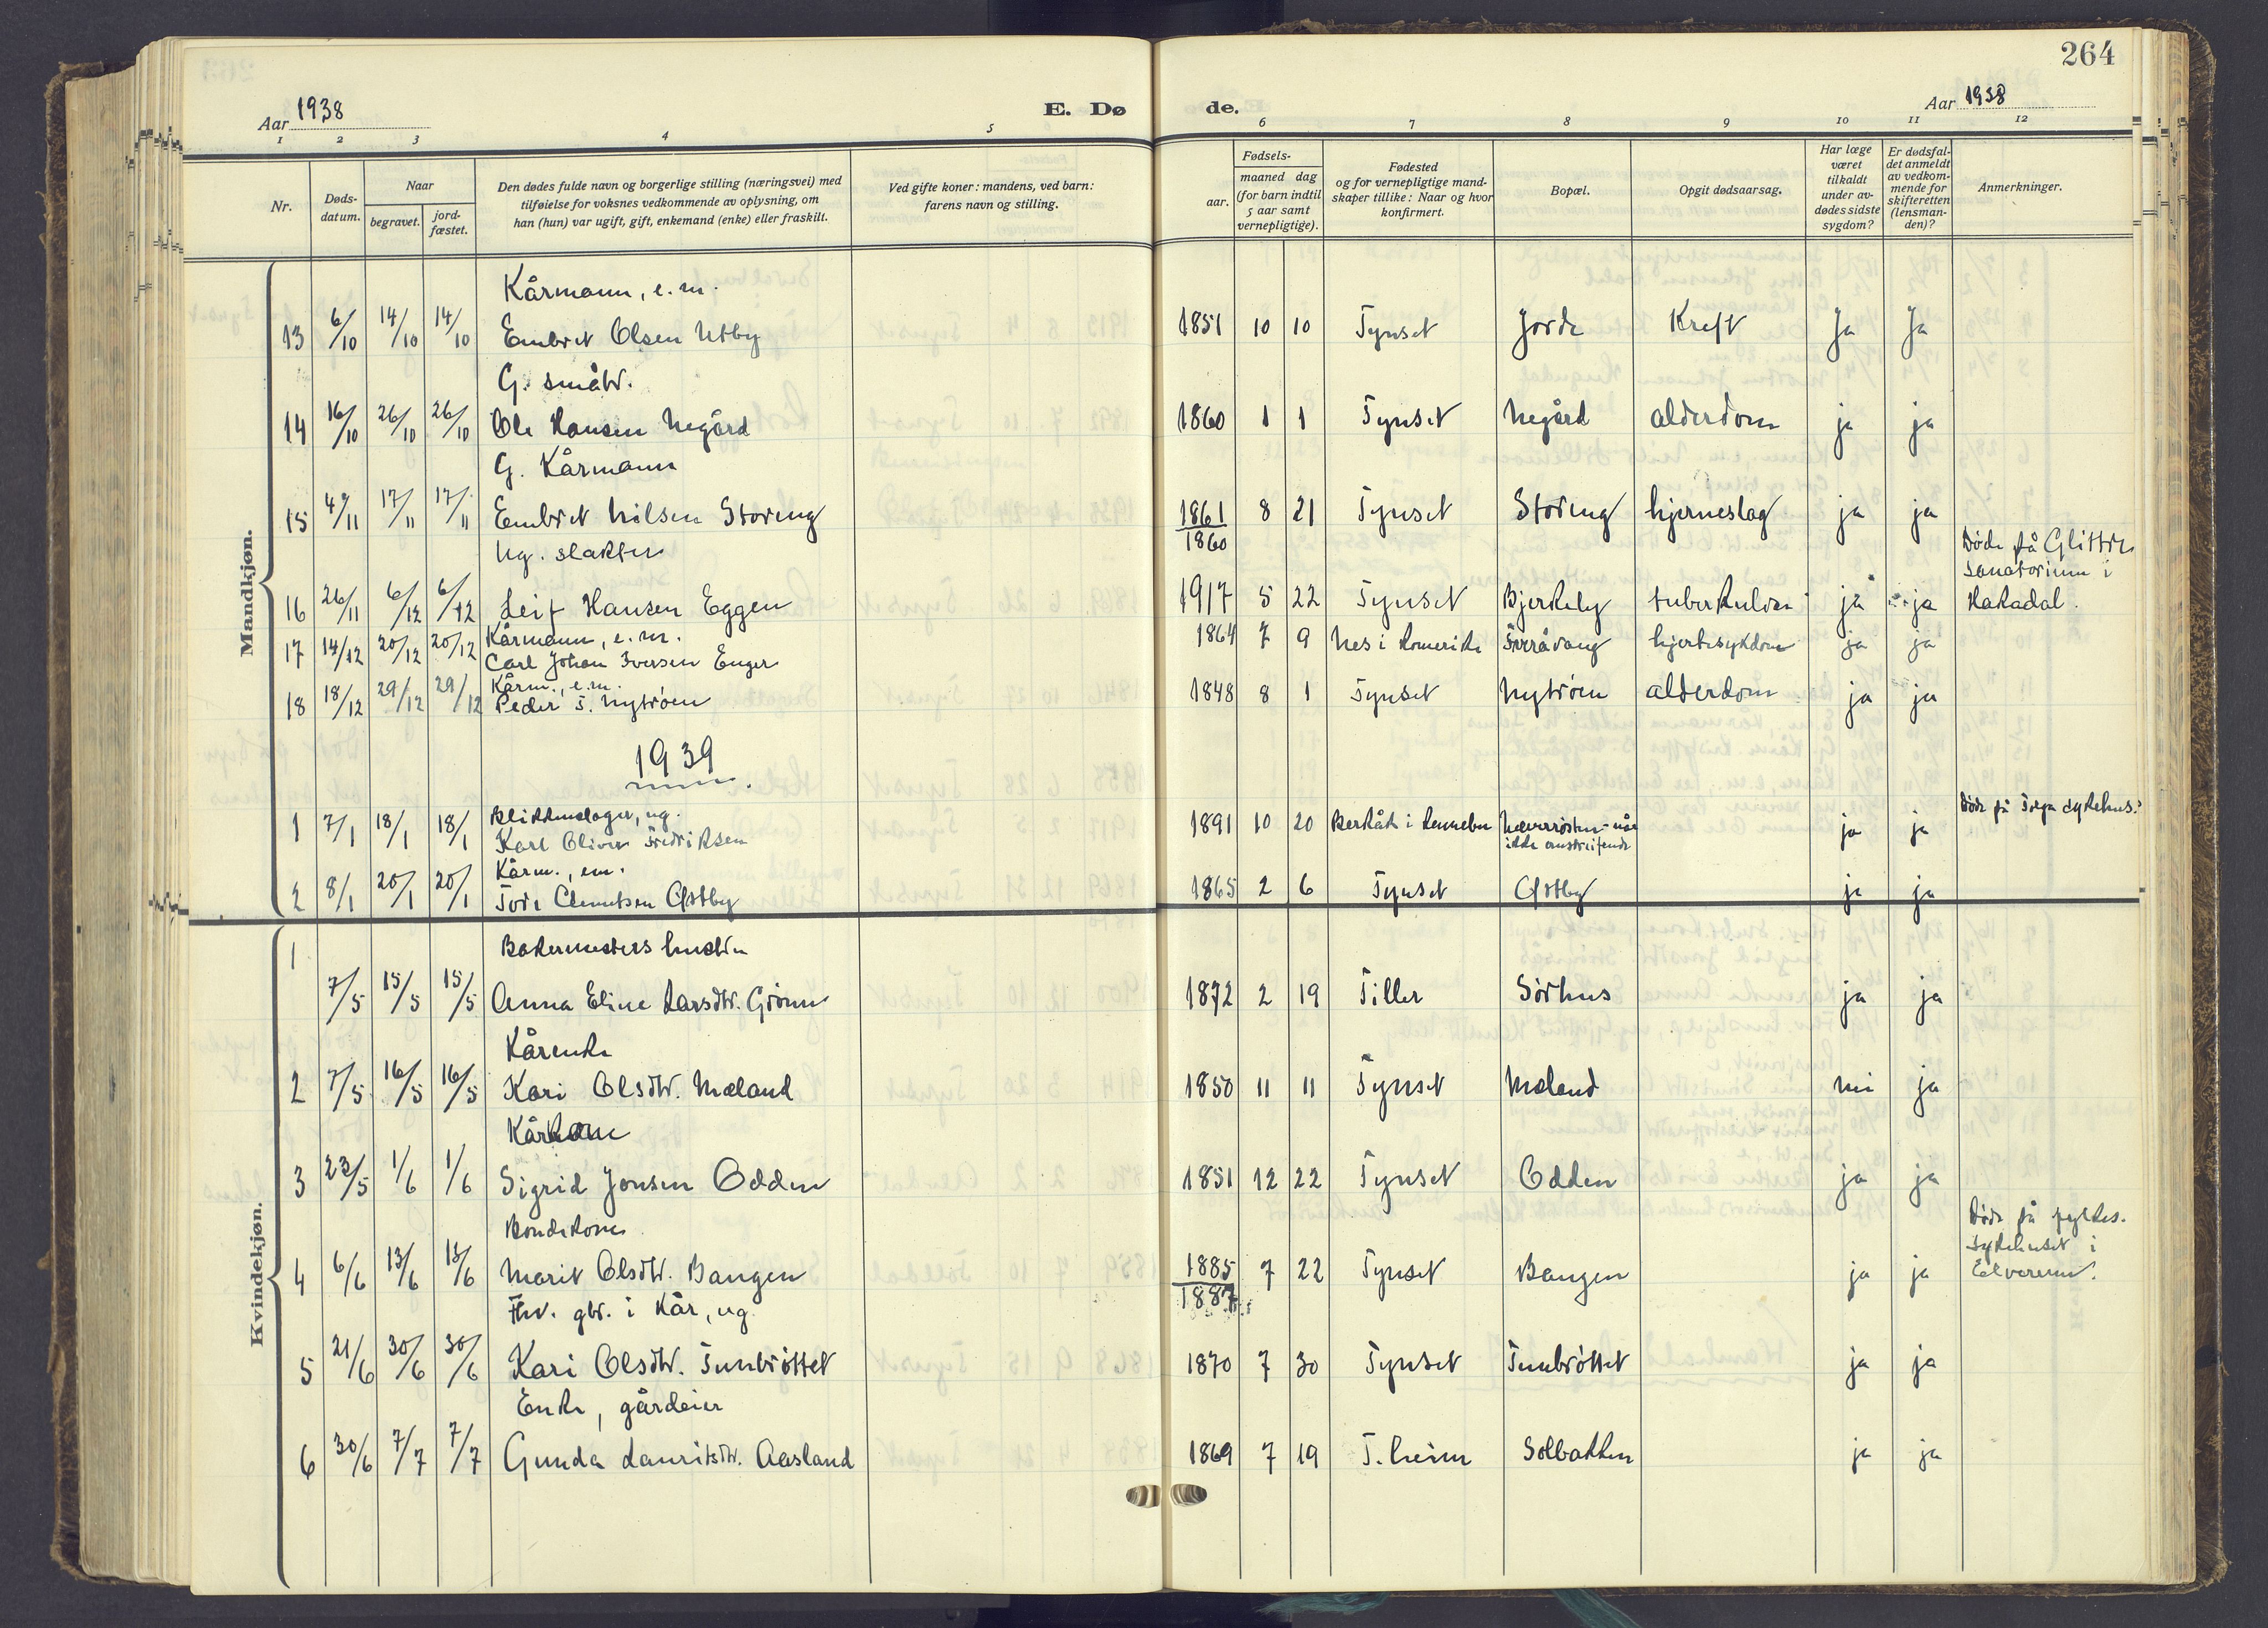 264
Aar 1938
E. Dø de.
Aar 1938
1 2 3 4 5 6 7 8 9 10 11 12
Nr.
Døds-
datum.
Naar
begravet.
jord-
fæstet.
Den dødes fulde navn og borgerlige stilling (næringsvei) med
tilføielse for voksnes vedkommende av oplysning, om
han (hun) var ugift, gift, enkemand (enke) eller fraskilt.
Ved gifte koner: mandens, ved barn:
farens navn og stilling.
Fødsels-
aar.
maaned dag
(for barn indtil
5 aar samt
vernepligtige).
Fødested
og for vernepligtige mand-
skaper tillike: Naar og hvor
konfirmert.
Bopæl.
Opgit dødsaarsag.
Har læge
været
tilkaldt
under av-
dødes sidste
sygdom?
Er dødsfal-
det anmeldt
av vedkom-
mende for
skifteretten
(lensman-
den)?
Anmerkninger.
Mandkjøn.
Kårmann, e.m.
13 6/10 14/10 14/10 Embret Olsen Utby 1851 10 10 Tynset Jorde Kreft Ja Ja
G. småbr.
14 16/10 26/10 26/10 Ole Hansen Negård 1860 1 1 Tynset Negård alderdom ja ja
G. Kårmann
15 4/11 17/11 17/11 Embret Nilsen Storeng 1861 8 21 Tynset Storeng hjerneslag ja ja
1860
Ug. slakter
Døde på Glittre
sanatorium i
16 26/11 6/12 6/12 Leif Hansen Eggen 1917 5 22 Tynset Bjerkely tuberkulose ja ja Hakadal.
Kårmann, e.m.
17 14/12 20/12 20/12 Carl Johan Iversen Enger 1864 7 9 Nes i Romerike hjertesykdom ja ja
Kårm., e.m.
18 18/12 29/12 29/12 Peder T. Nytrøen 1848 8 1 Tynset Nytrøen alderdom ja ja
1939
Blikkenslager, ug.
1 7/1 18/1 18/1 Karl Oliver Fredriksen 1891 10 20 Berkåk i Rennebu ikke omstreifende ja ja Døde på Tolga sykehus.
Kårm., em.
2 8/1 20/1 20/1 Tore Clemetsen Østby 1865 2 6 Tynset Østby ja ja
Kvindekjøn.
1 Bakermesters hustru
7/5 15/5 15/5 Anna Eline Larsdtr. Grønn 1872 2 19 Tiller Sørhus ja ja
Kårenke
2 7/5 16/5 16/5 Kari Olsdtr. Mæland 1850 11 11 Tynset Mæland nei ja
Kårkone
3 23/5 1/6 1/6 Sigrid Jonsen Odden 1851 12 22 Tynset Odden ja ja
Bondekone
Døde på fylkes-
sykehuset i
4 6/6 13/6 13/6 Marit Olsdtr. Bangen 1885 7 22 Tynset Bangen ja ja Elverum.
1887
Fhv. gbr. i kår, ug.
5 21/6 30/6 30/6 Kari Olsdtr. Tunbrøttet 1870 7 30 Tynset Tunbrøttet ja ja
Enke, gårdeier
6 30/6 7/7 7/7 Gunda Lauritsdtr. Aasland 1869 7 19 T.heim Solbakken ja ja